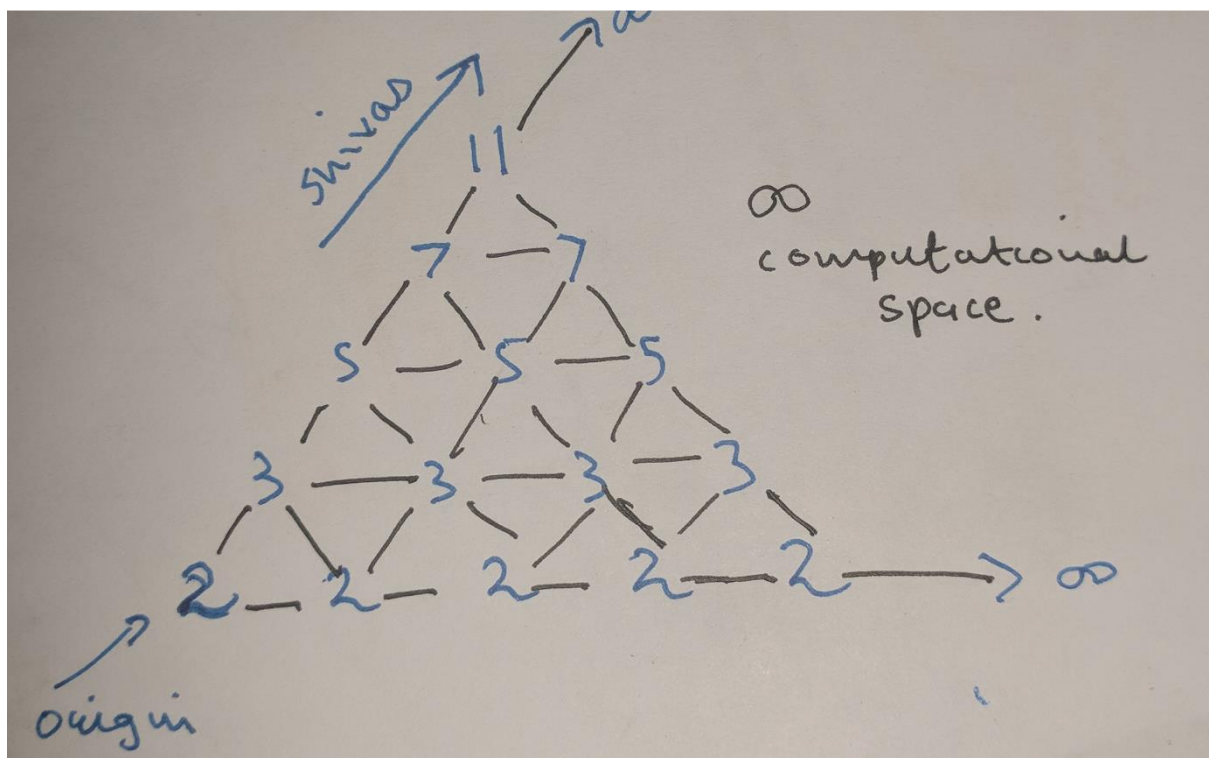 shivas
11
7 7
∞
computational
space.
5 5 5
3 3 3 3
2 2 2 2 2 ∞
origin